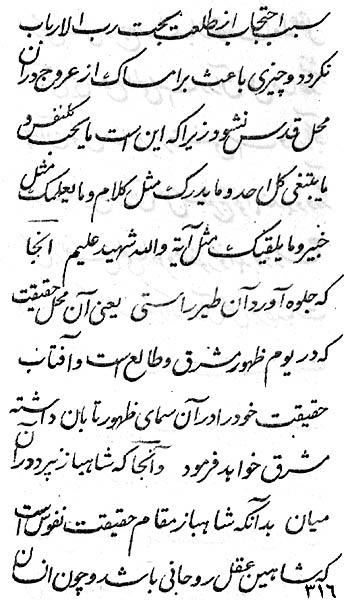 سبب احتجاب از طلعت بهجت رب الارباب
نگردد و چیزی باعث بر امساک از عروج در آن
محل قدس نشود زیرا که این است ما یحب کلنفس و
ما یبتغی کل احد و ما یدرک مثل کلام و ما یعلمک مثل
خبیر و ما یلقیک مثل آیة والله شهید علیم آنجا
که جلوه آورد آن طیر راستی یعنی آن محل حقیقت
که در یوم ظهور مشرق و طالع است و آفتاب
حقیقت خود را در آن سمای ظهور تابان داشته
مشرق خواهد فرمود و آنجا که شاهباز نپرد در آن
میان بدانکه شاهباز مقام حقیقت نفوس است
که شاهین عقل روحانی باشد و چون انسان
۳۱۶